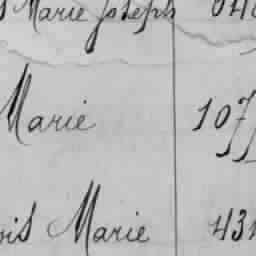 Marie Joseph
Marie 107
ois Marie 43